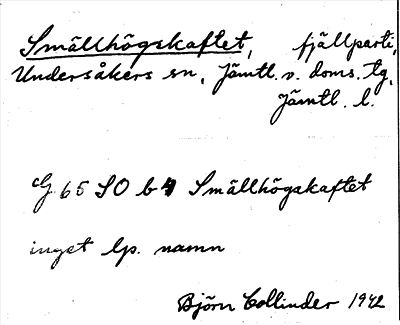 Smällhögskaftet, fjällparti,
Undersåkers sn, Jämtl. v. doms. tg,
Jämtl. l.
G 65 SO b 4 Smällhögskaftet
inget lp. namn
Björn Collinder 1942